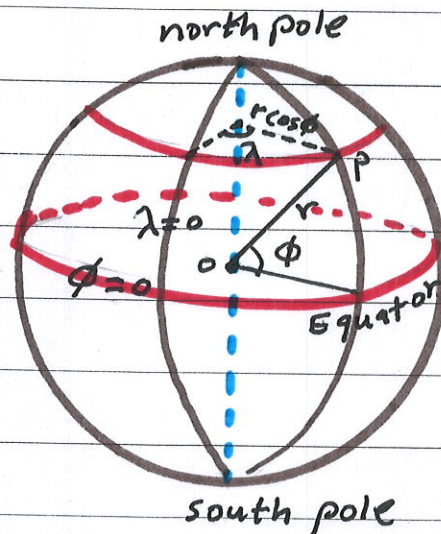 north pole
r cos ϕ
λ
P
r
λ=0
ϕ
o
ϕ=0
Equator
south pole